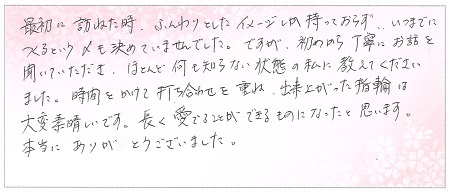 最初に訪ねた時、ふんわりとしたイメージしか持っておらず、いつまでに
つくるという〆も決めていませんでした。ですが、初めから丁寧にお話を
聞いていただき、ほとんど何も知らない状態の私に教えてください
ました。時間をかけて打ち合わせを重ね、出来上がった指輪は
大変素晴しいです。長く愛でることができるものになったと思います。
本当にありがとうございました。